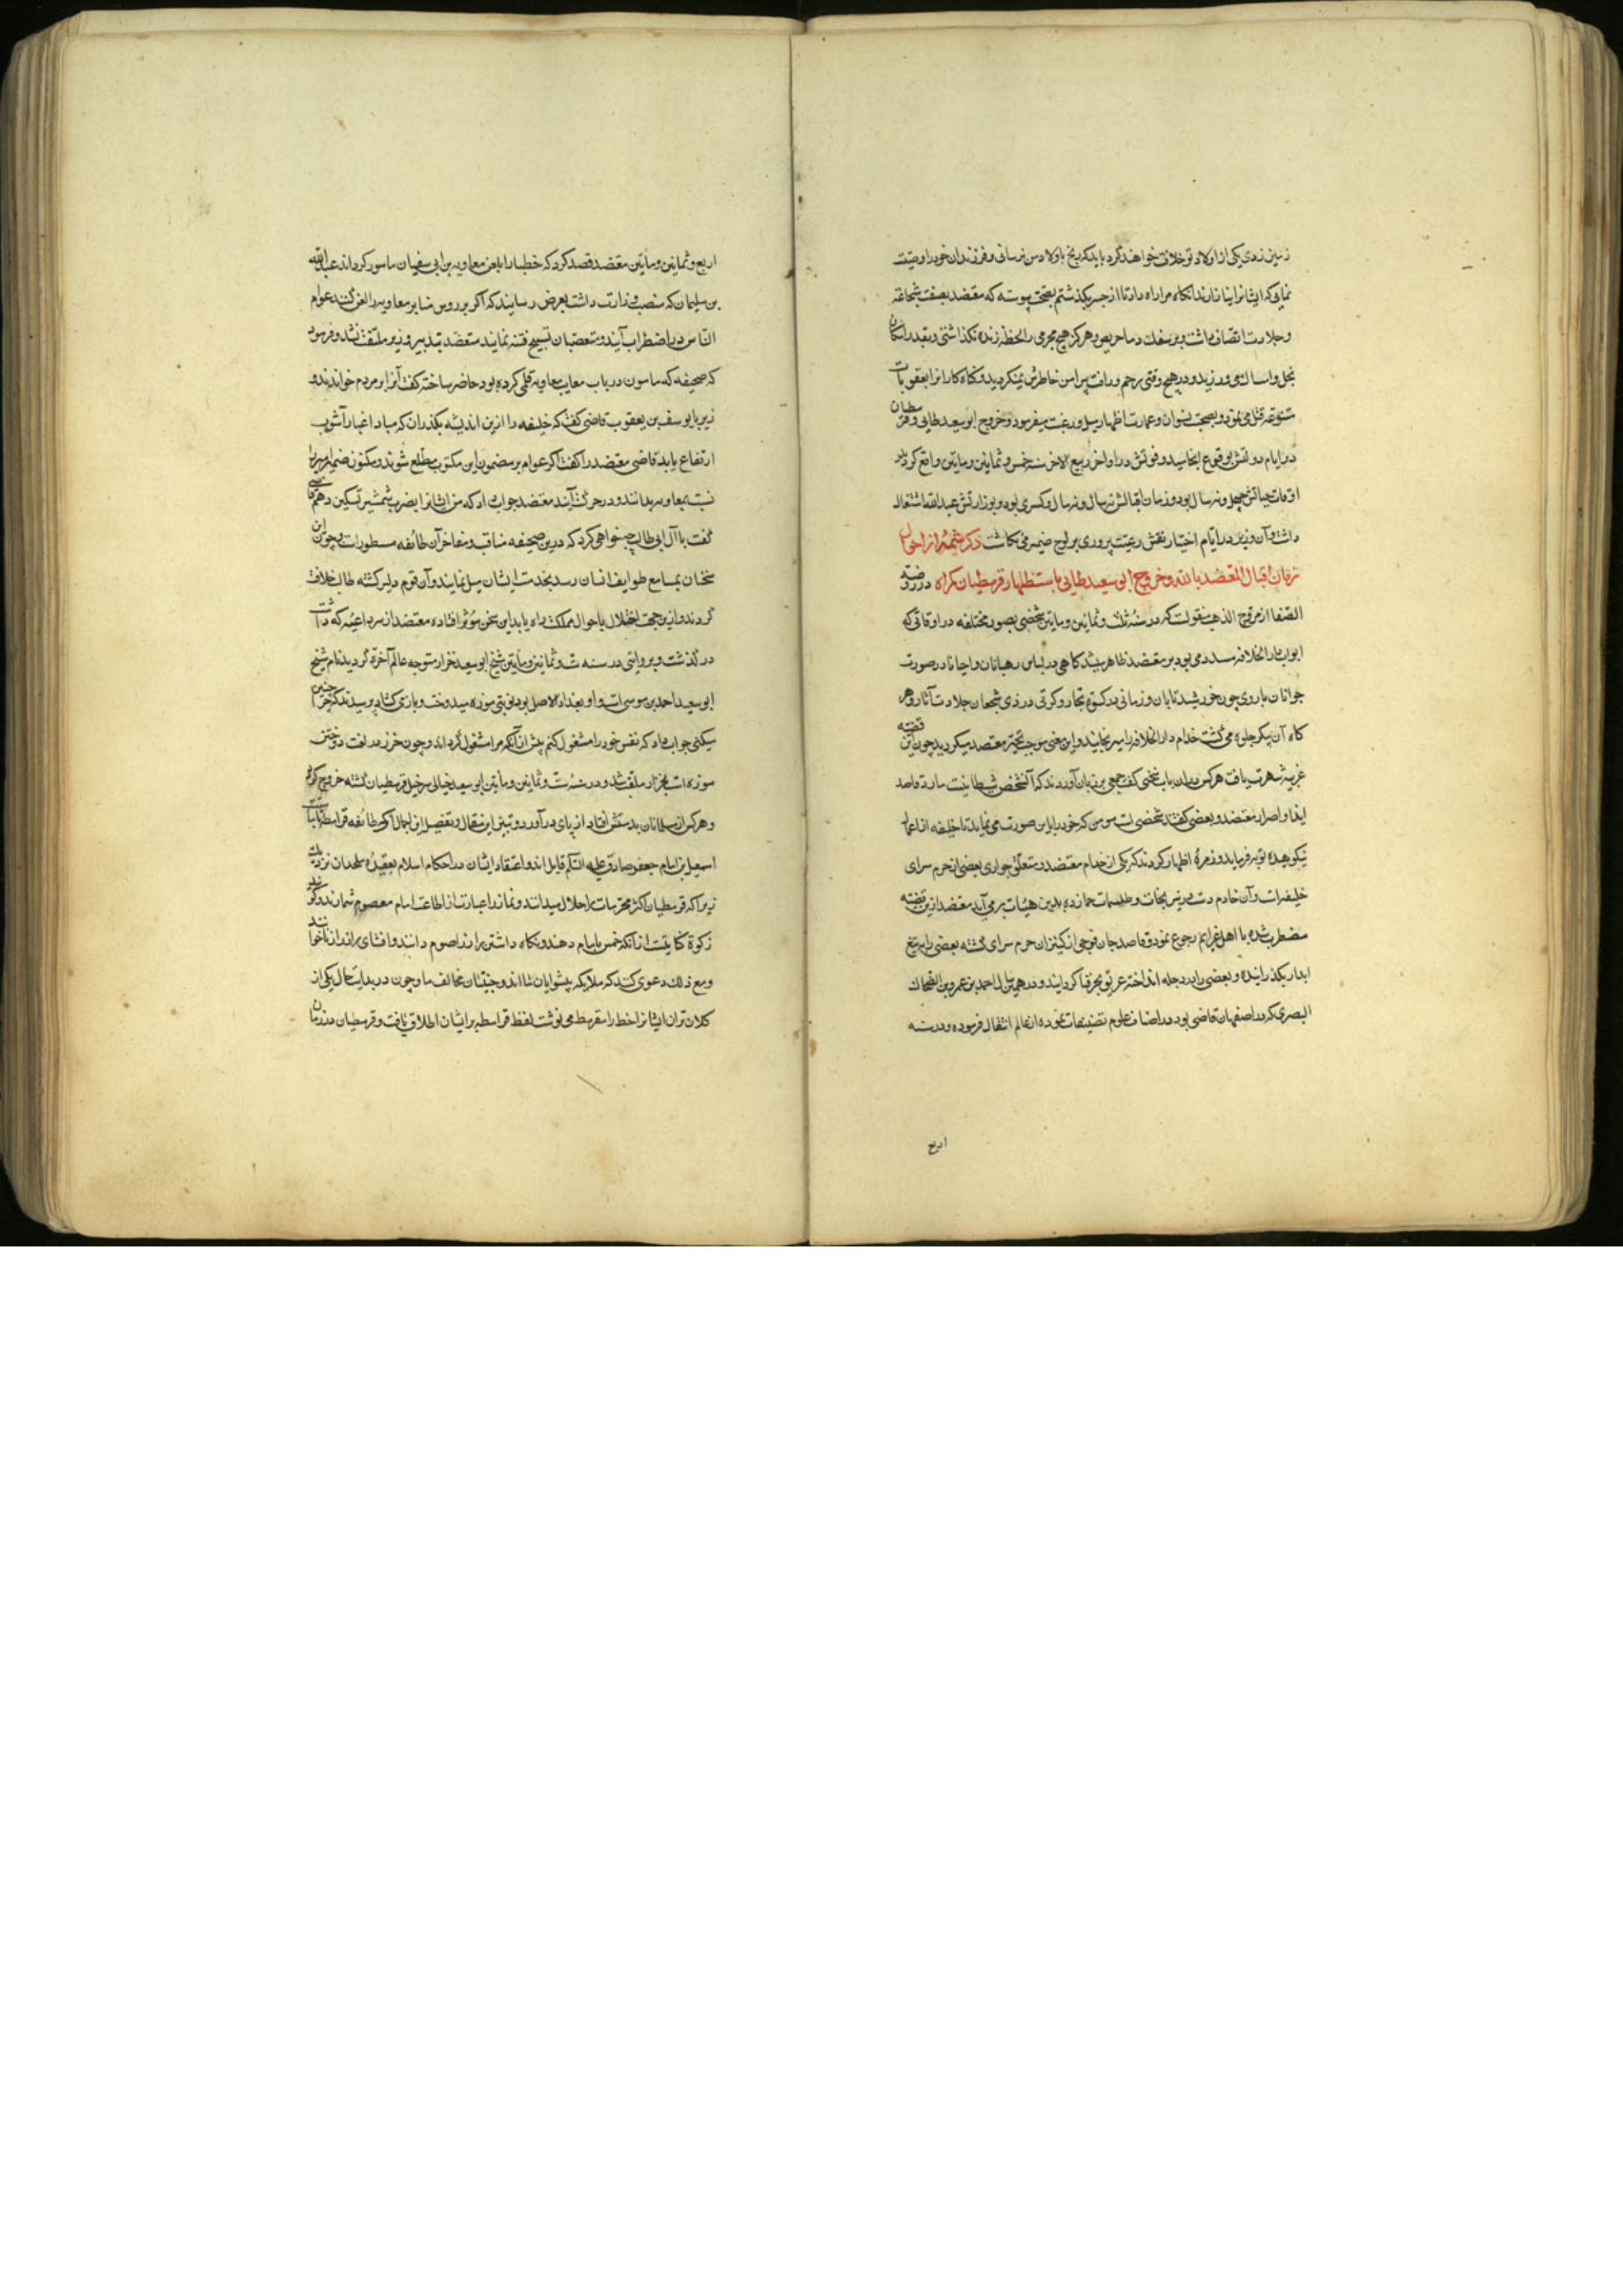 زمین زدی یکی از اولاد تو خلافت خواهند کرد باید که رنج باولاد من نرسانی و فرزندان خود را وصیت
نمایی که ایشانرا نیازارند انکاه مرا راه داد تا از جسر بکذشتم بصحت پیوسته که معتضد بصفت شجاعت
و جلادت اتصاف داشت و بر سفک دما حریص و هرکز هیچ مجرمی را لحظه زنده نکذاشتی و بقدر امکان
بخل و امساک می ورزید و در هیچ وقتی رحم و رافت پیرامن خاطرش نمیکردید و کناه کارانرا بعقوبات
متنوعه قتل می نمود و بصحبت نسوان و عمارت اظهار میل و رغبت میفرمود و خروج ابو سعید طایی و قرمطیان
در ایام دولتش بوقوع انجامید و فوتش در اواخر ربیع الاخر سنه خمس و ثمانین و مایتین واقع کردید
اوقات حیاتش چهل و نه سال بود و زمان اقبالش نه سال و نه سال و کسری بود و بوزارتش عبدالله اشتغال
داشت و آن وزیر در ایام اختیار نقش رعیت پروری بر لوح ضمیر می نکاشت ذکر شمهٔ از احوال
زمان اقبال المعتضد بالله و خروج ابی سعید طایی باستظهار قرمطیان کمراه در روضة
الصفا از مروج الذهب منقولست که در سنهٔ ثلث و ثمانین و مایتین شخصی بصور مختلفه در اوقاتی که
ابواب دار الخلافه مسدد می بود بر معتضد ظاهر میشد کاهی در لباس رهبانان و احیانا در صورت
جوانان با روی چون خورشید تابان و زمانی در کسوة تجار و کرتی در زی شجعان جلادت آثار و هر
کاه آن پیکر جلوه می کشت خدام دار الخلافه را میرنجانید و این معنی موجب تحیر معتضد میکردید چون این قضیه
غریبه شهرت یافت هر کس در ان باب سخنی کفت جمعی بر زبان آوردند که آن شخص شیطانیست مارد قاصد
ایذا و اصرار معتضد و بعضی کفتند شخصی است مومن که خود را باین صورت می نماید تا خلیفه از اعمال
نیکوهیده توبه فرماید و زمرهٔ اظهار کردند که یکی از خدام معتضد و متعلق جواری بعضی از حرم سرای
خلیفه است و آن خادم دست در نیرنجات و طلسمات زده بدین هیئات برمی آید معتضد ازین قضیه
مضطرب شده با اهل عزایم رجوع نمود و قاصد جان فوجی از کنیزان حرم سرای کشته بعضی را بر تیغ
ابدار بکذرانیده و بعضی را در دجله انداخته غریق بحر فنا کردانید و در همین سال احمد بن عمرو بن الضحاک
البصری که در اصفهان قاضی بود در اصناف علوم تصنیفات نموده از عالم انتقال فرموده و در سنه
اربع
اربع و ثمانین و مایتین معتضد قصد کرد که خطبا را بلعن معاویه بن ابی سفیان مامور کرداند عبدالله
بن سلیمان که منصب وزارت داشت بعرض رسانید که اکر بر روس منابر معاویه را لعن کنند عوام
الناس در اضطراب آیند و متعصبان تهییج فتنه نمایند معتضد بتدبیر وزیر ملتفت نشد و فرمود
که صحیفه که مامون در باب معایب معاویه قلمی کرده بود حاضر ساخته کفت آنرا بر مردم خوانند و
زیر با یوسف بن یعقوب قاضی کفت که خلیفه را ازین اندیشه بکذران که مبادا غبار آشوب
ارتفاع یابد قاضی معتضد را کفت اکر عوام بر مضمون این مکتوب مطلع شوند و مکنون ضمیر امیر را
نسبت بمعاویه بدانند در حرکت آیند معتضد جواب داد که من ایشانرا بضرب شمشیر تسکین دهم قاضی
کفت با آل ابی طالب چه خواهی کرد که درین صحیفه مناقب و مفاخر آن طایفه مسطور است و چون این
سخنان بمسامع طوایف انسان رسد بخدمت ایشان میل نمایند و آن قوم دلیر کشته طالب خلافت
کردند و ازین جهت اختلال باحوال مملکت راه یابد این سخن مؤثر افتاده معتضد از سر داعیه که داشت
در کذشت و بروایتی در سنه ست و ثمانین و مایتین شیخ ابو سعید خراز متوجه عالم آخرة کردید نام شیخ
ابو سعید احمد بن موسی است و او بغداد الاصل بود نوبتی موزه میدوخت و باز می کشاد پرسیدند که چرا چنین
میکنی جواب داد که نفس خود را مشغول کنم پیش از انکه مرا مشغول کرداند و چون خرز در لغت دوختن
موزه است بخراز ملقب شد و در سنهٔ ست و ثمانین و مایتین ابو سعید جنابی سرخیل قرمطیان کشته خروج کرد
و هرکس از مسلمانان بدستش افتاد از پای در آورد و تبیین این مقال و تفصیل این اجمال آنکه طائفه قرامطه بامامت
اسمعیل بن امام جعفر صادق علیه السلم قایل اند و اعتقاد ایشان در احکام اسلام بعقیدهٔ ملحدان نزدیکست
زیرا که قرمطیان اکثر محرمات را حلال میدانند و نماز را عبارت از اطاعت امام معصوم شمارند و کویند
زکوة کنایتست از انکه خمس بامام دهند و نکاه داشتن راز را صوم دانند و افشای راز را زنا خوانند
و مع ذلک دعوی کنند که ملایکه پیشوایان ما اند و جنیتان مخالف ما و چون در بدایت حال یکی از
کلانتران ایشانرا خط را مقرمط می نوشت لفظ قرامطه بر ایشان اطلاق یافت و قرمطیان در زمان